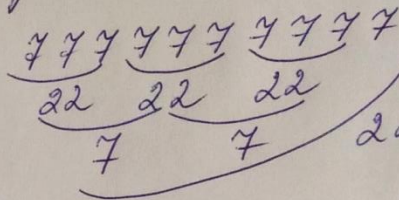 7 7 7 7 7 7 7 7 7 7
22 22 22
7 7